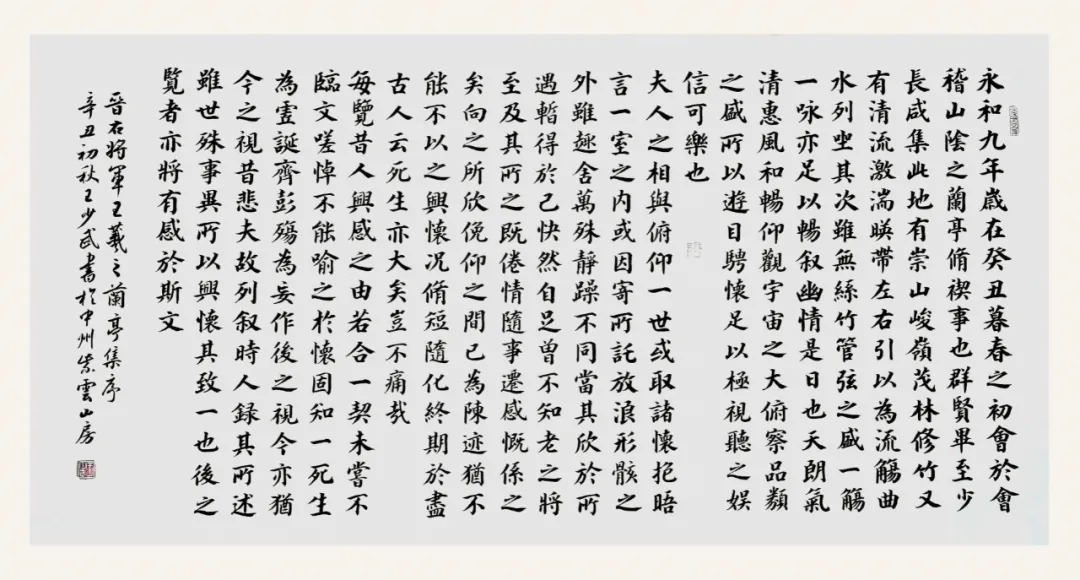 永和九年歲在癸丑暮春之初會於會
稽山陰之蘭亭脩禊事也群賢畢至少
長咸集此地有崇山峻嶺茂林修竹又
有清流激湍暎帶左右引以為流觴曲
水列坐其次雖無絲竹管弦之盛一觴
一咏亦足以暢叙幽情是日也天朗氣
清惠風和暢仰觀宇宙之大俯察品類
之盛所以遊目騁懷足以極視聽之娛
信可樂也
夫人之相與俯仰一世或取諸懷抱晤
言一室之内或因寄所託放浪形骸之
外雖趣舍萬殊静躁不同當其欣於所
遇暫得於己快然自足曽不知老之將
至及其所之既倦情隨事遷感慨係之
矣向之所欣俛仰之間已為陳迹猶不
能不以之興懷况脩短隨化終期於盡
古人云死生亦大矣豈不痛哉
每覽昔人興感之由若合一契未嘗不
臨文嗟悼不能喻之於懷固知一死生
為虛誕齊彭殤為妄作後之視今亦猶
今之視昔悲夫故列叙時人録其所述
雖世殊事異所以興懷其致一也後之
覽者亦將有感於斯文
晉右將軍王羲之蘭亭集序
辛丑初秋王少武書於中州紫雲山房